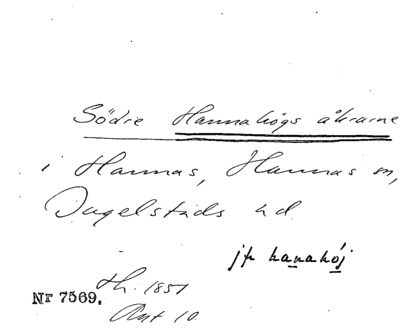 Södre Hannahögs åkrarne
i Hannas, Hannas sn,
Ingelstads hd
jfr hanahój
Nr 7569. Lh. 1851
Akt 10